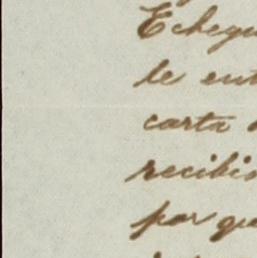 Echegu
le ent
carta
recibio
por qu